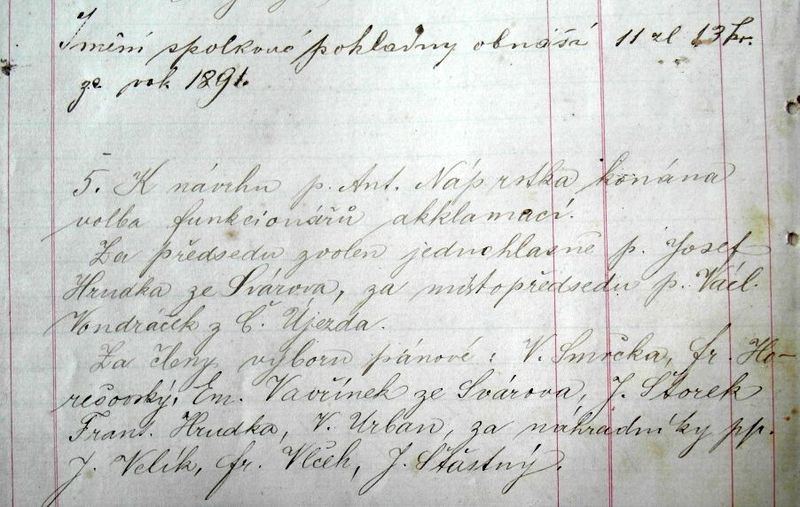 Jmění spolkové pokladny obnáší 11 zl 13 kr.
za rok 1891.
5. K návrhu p. Ant. Náprstka konána
volba funkcionářů akklamací.
Za předsedu zvolen jednohlasně p. Josef
Hrudka ze Svárova, za místopředsedu p. Václ.
Vondráček z Č. Újezda.
Za členy výboru pánové: V. Smočka, fr. Ho-
rešovský, Em. Vavřínek ze Svárova, J. Štorek
Frant. Hrudka, V. Urban, za náhradníky pp.
J. Velík, fr. Vlček, J. Šťastný.